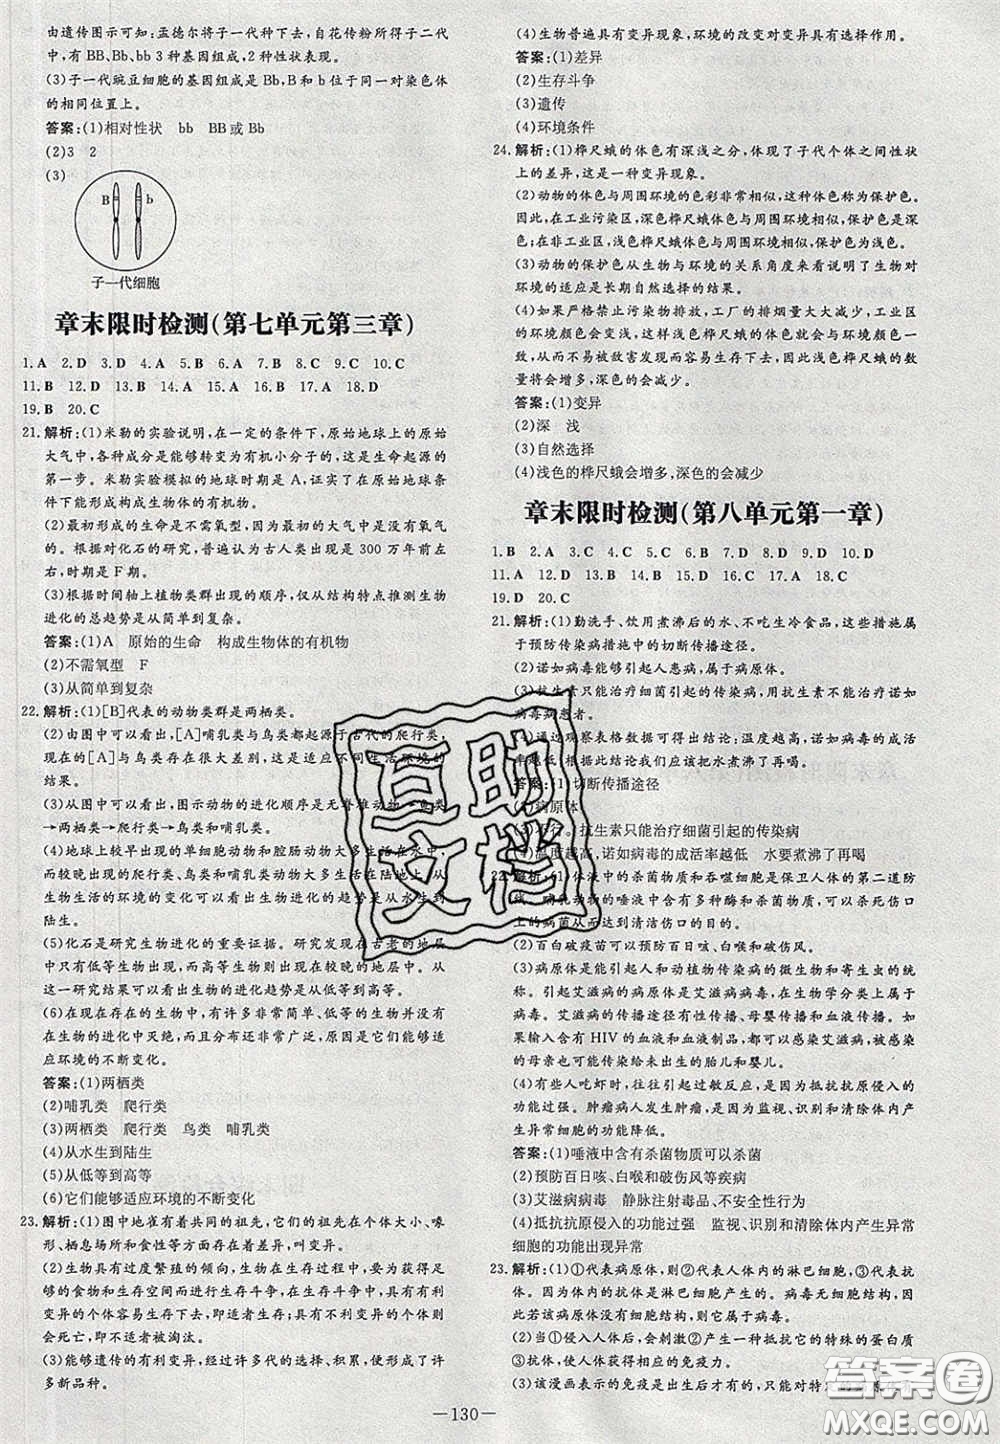 由遗传图示可知：孟德尔将子一代种下去，自花传粉所得子二代
中，有 BB、Bb、bb 3 种基因组成，2 种性状表现。
(3)子一代豌豆细胞的基因组成是 Bb，B 和 b 位于同一对染色体
的相同位置上。
答案：(1)相对性状 bb BB 或 Bb
(2)3 2
(3)
B b
子一代细胞
章末限时检测(第七单元第三章)
1. A 2. D 3. D 4. C 5. B 6. A 7. B 8. C 9. C 10. C
11. B 12. B 13. D 14. A 15. A 16. B 17. A 18. D
19. B 20. C
21. 解析：(1)米勒的实验说明，在一定的条件下，原始地球上的原始
大气中，各种成分能够转变为有机小分子的，这是生命起源的
第一步。米勒实验模拟的地球时期是 A，证实了在原始地球条
件下能形成构成生物体的有机物。
(2)最初形成的生命是不需氧型，因为最初的大气中是没有氧气
的。根据对化石的研究，普遍认为古人类出现是 300 万年前左
右，时期是 F 期。
(3)根据时间轴上植物类群出现的顺序，仅从结构特点推测生物
进化的总趋势是从简单到复杂。
答案：(1)A 原始的生命 构成生物体的有机物
(2)不需氧型 F
(3)从简单到复杂
22. 解析：(1)[B]代表的动物类群是两栖类。
(2)由图中可以看出，[A]哺乳类与鸟类都起源于古代的爬行类；
现在的[A]与鸟类存在很大差异，这是不同生活环境的
结果。
(3)由图中可以看出，图示动物的进化顺序是无脊椎动物→鱼类
→两栖类→爬行类→鸟类和哺乳类。
(4)地球上较早出现的单细胞动物和腔肠动物大多生活在水中，
而较晚出现的爬行类、鸟类和哺乳类动物大多生活在陆地上，从
生物生活的环境的变化可以看出，生物进化的趋势是从水生到
陆生。
(5)化石是研究生物进化的重要证据。研究发现在古老的地层
中只有低等生物出现，而高等生物则出现在较晚的地层中，从
这一研究结果可以看出生物的进化趋势是从低等到高等。
(6)在现在存在的生物中，有许多非常简单、低等的种类，它们没
有在进化中灭绝，而且分布还非常广泛，原因是它们能够不断适
应环境的不断变化。
答案：(1)两栖类
(2)哺乳类 爬行类
(3)两栖类 爬行类 鸟类 哺乳类
(4)从水生到陆生
(5)从低等到高等
(6)它们能够适应环境的不断变化
23. 解析：(1)图中地雀有着共同的祖先，它们的在个体大小、喙
形、栖息场所和食性等方面有着差异，叫变异。
(2)生物具有过度繁殖的倾向，生物在生存过程中，要为获
食物和生存空间而进行生存斗争，在生存斗争中，具有有利
变异的个体容易生存下去，即适者生存；具有不利变异的个体则
会死亡，即不适者被淘汰。
(3)能够遗传的有利变异，经过许多代的选择、积累，便形成了许
多新品种。
(4)生物普遍具有变异现象，环境的改变对变异起选择作用。
答案：(1)差异
(2)生存斗争
(3)遗传
(4)环境条件
24. 解析：(1)桦尺蛾的体色有深浅之分，体现了子代个体之间性状
上的差异，这是一种变异现象。
(2)动物的体色与周围环境的色彩非常相似，这种体色称为保护色。
因此，在工业污染区，深色桦尺蛾体色与周围环境相似，保护色是深
色；在非工业区，浅色桦尺蛾体色与周围环境相似，保护色为浅色。
(3)动物的保护色从生物与环境的关系角度来说说明了生物对
环境的适应是长期自然选择的结果。
(4)如果严格禁止污染物排放，工厂的排烟量大大减少，工业区
的环境颜色会变浅，这样浅色桦尺蛾的体色就会与环境一致，
不易被敌害发现而容易生存下去，因此浅色桦尺蛾的数
量将会增多，深色的会减少。
答案：(1)变异
(2)深 浅
(3)自然选择
(4)浅色的桦尺蛾会增多，深色的会减少
章末限时检测(第八单元第一章)
1. B 2. A 3. C 4. C 5. B 6. D 7. D 8. D 9. D 10. D
11. A 12. D 13. C 14. B 15. C 16. D 17. A 18. C
19. D 20. C
21. 解析：(1)勤洗手、饮用煮沸后的水、不吃生冷食品，这些措施属
于预防传染病措施中的切断传播途径。
(2)诺如病毒能够引起人患病，属于病原体。
(3)抗生素只能治疗细菌引起的传染病，用抗生素不能治疗诺如
病毒病患者。
(4)通过观察表格数据可得出结论：温度越高，诺如病毒的成活
率越低。因此我们应该把水煮沸了再喝。
答案：(1)切断传播途径
(2)病原体
(3)不行。抗生素只能治疗细菌引起的传染病
(4)温度越高，诺如病毒的成活率越低 水要煮沸了再喝
22. 解析：(1)体液中的杀菌物质和吞噬细胞是保卫人体的第二道防
线。哺乳动物的唾液中含有多种酶和杀菌物质，可以杀死伤口
上的病菌从而达到清洁伤口的目的。
(2)百白破疫苗可以预防百日咳、白喉和破伤风。
(3)病原体是能引起人和动植物传染病的微生物和寄生虫的统
称。引起艾滋病的病原体是艾滋病病毒，在生物学分类上属于病
毒。艾滋病的传播途径有性传播、母婴传播和血液传播。如
果输入含有 HIV 的血液和血液制品，都可以感染艾滋病，被感染
的母亲也可能传染给未出生的胎儿和婴儿。
(4)有些人吃虾时，体内出现过敏反应，是因为抵抗抗原侵入的
功能过强。肿瘤病人发生肿瘤，是因为监视、识别和清除体内产
生异常细胞的功能降低。
答案：(1)唾液中含有杀菌物质可以杀菌
(2)预防百日咳、白喉和破伤风等疾病
(3)艾滋病病毒 静脉注射毒品、不安全性行为
(4)抵抗抗原侵入的功能过强 监视、识别和清除体内产生异常
细胞的功能出现异常
23. 解析：(1)①代表病原体，②代表人体内的淋巴细胞，③代表抗
体。因为①代表天花病毒，病毒无细胞结构，因
此如该病原体没有细胞结构，则它属于病毒。
(2)当①侵入人体后，会刺激②产生一种抵抗它的特殊的蛋白质
③抗体，引起人体获得相应的免疫力。
(3)该漫画表示的免疫是出生后才有的，只能对特定的
—130—
互助文档
答案圈
MXQE.COM